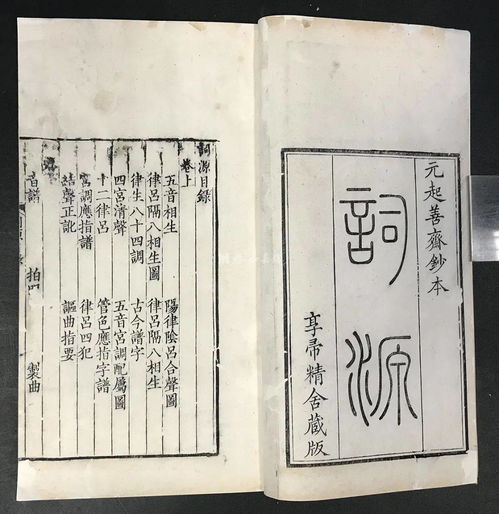 元起善齋鈔本
詞源
享帚精舍藏版
詞源目錄
卷上
五音相生 陽律陰呂合聲圖
律呂隔八相生圖 律呂隔八相生
律生八十四調 古今譜字
四宮清聲 五音宮調配屬圖
十二律呂 管色應指字譜
宮調應指譜 律呂四犯
結聲正訛 謳曲指要
音譜 拍 製曲